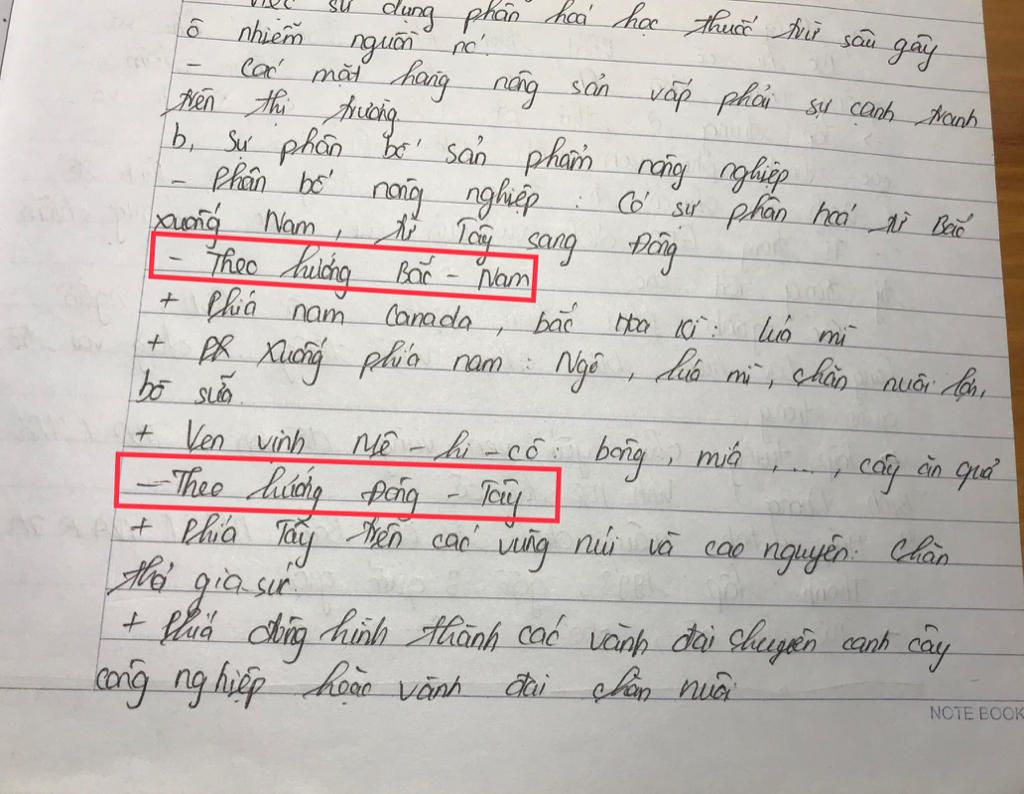 việc sử dụng phân hoá học thuốc trừ sâu gây
ô nhiễm nguồn nớ
- các mặt hàng nông sản vấp phải sự cạnh tranh
trên thị trường
b, sự phân bố sản phẩm nông nghiệp
- phân bố nông nghiệp : Có sự phân hoá từ Bắc
xuống Nam, từ Tây sang Đông
- Theo hướng Bắc - Nam
+ phía nam Canada, bắc Hoa Kì : lúa mì
+ xuống phía nam : Ngô, lúa mì, chăn nuôi lợn,
bò sữa.
+ Ven vịnh Mê - hi - cô : bông, mía, ..., cây ăn quả
- Theo hướng Đông - Tây
+ phía Tây trên các vùng núi và cao nguyên: Chăn
thả gia súc.
+ phía đông hình thành các vành đai chuyên canh cây
công nghiệp hoặc vành đai chăn nuôi
NOTE BOOK